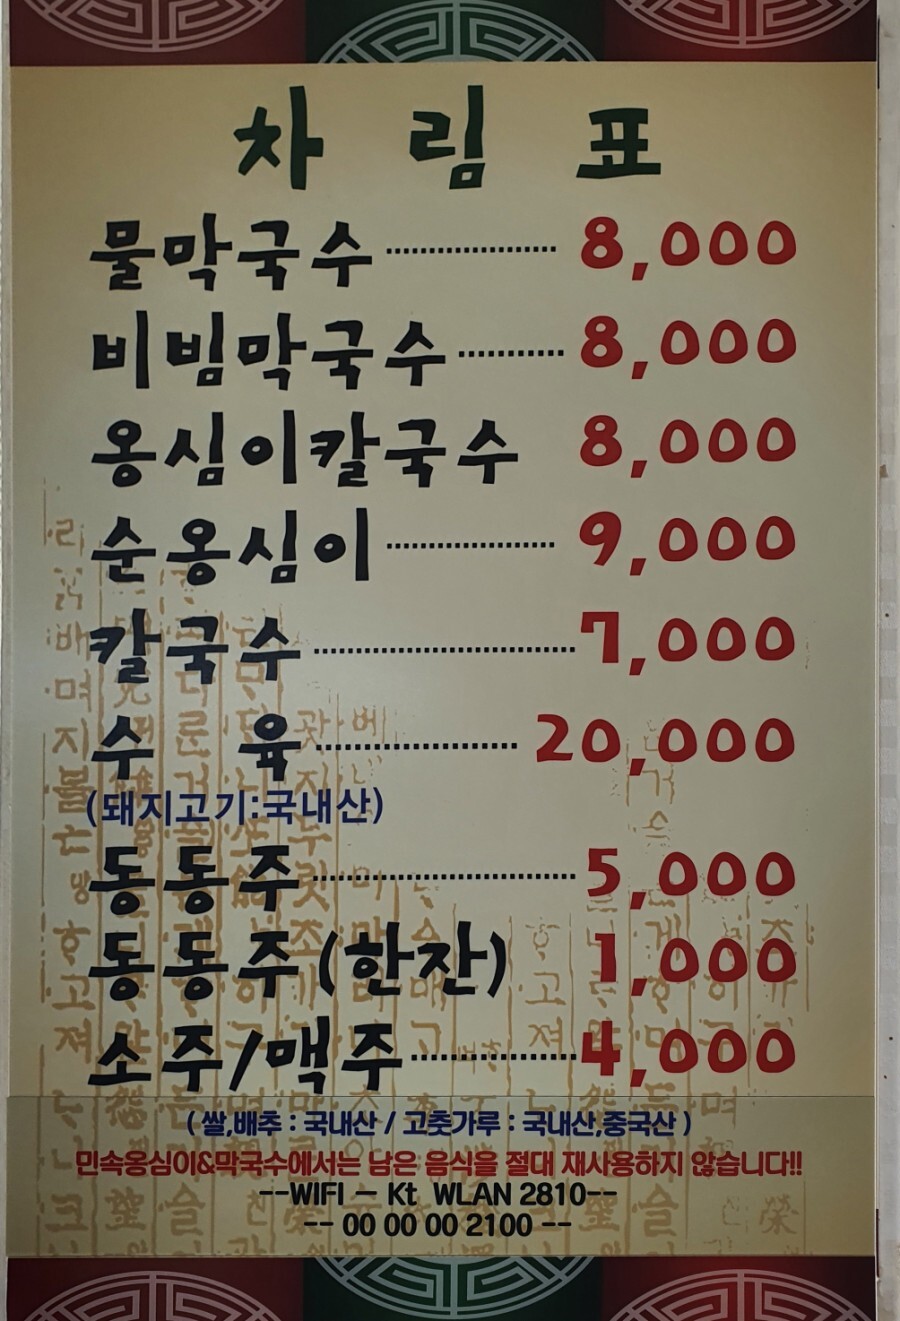 차림표
물막국수 8,000
비빔막국수 8,000
옹심이칼국수 8,000
순옹심이 9,000
칼국수 7,000
수 육 20,000
(돼지고기:국내산)
동동주 5,000
동동주(한잔) 1,000
소주/맥주 4,000
( 쌀,배추 : 국내산 / 고춧가루 : 국내산,중국산 )
민속옹심이&막국수에서는 남은 음식을 절대 재사용하지 않습니다!!
--WIFI - Kt WLAN 2810--
-- 00 00 00 2100 --